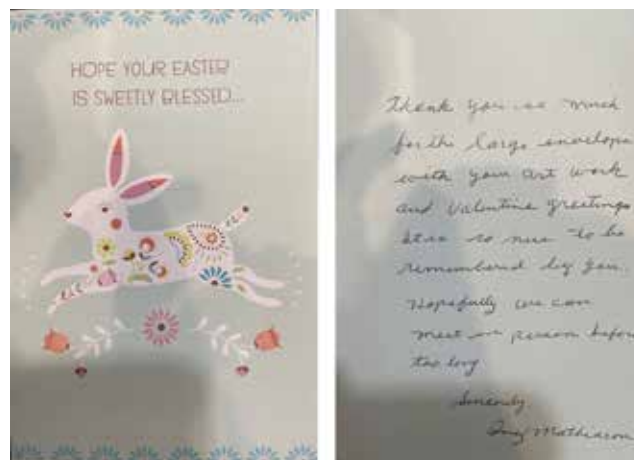 HOPE YOUR EASTER
IS SWEETLY BLESSED...
Thank you so much
for the large envelope
with your art work
and Valentine greetings
so nice to be
remembered by you.
Hopefully we can
meet in person before
too long
Sincerely
Mathiason